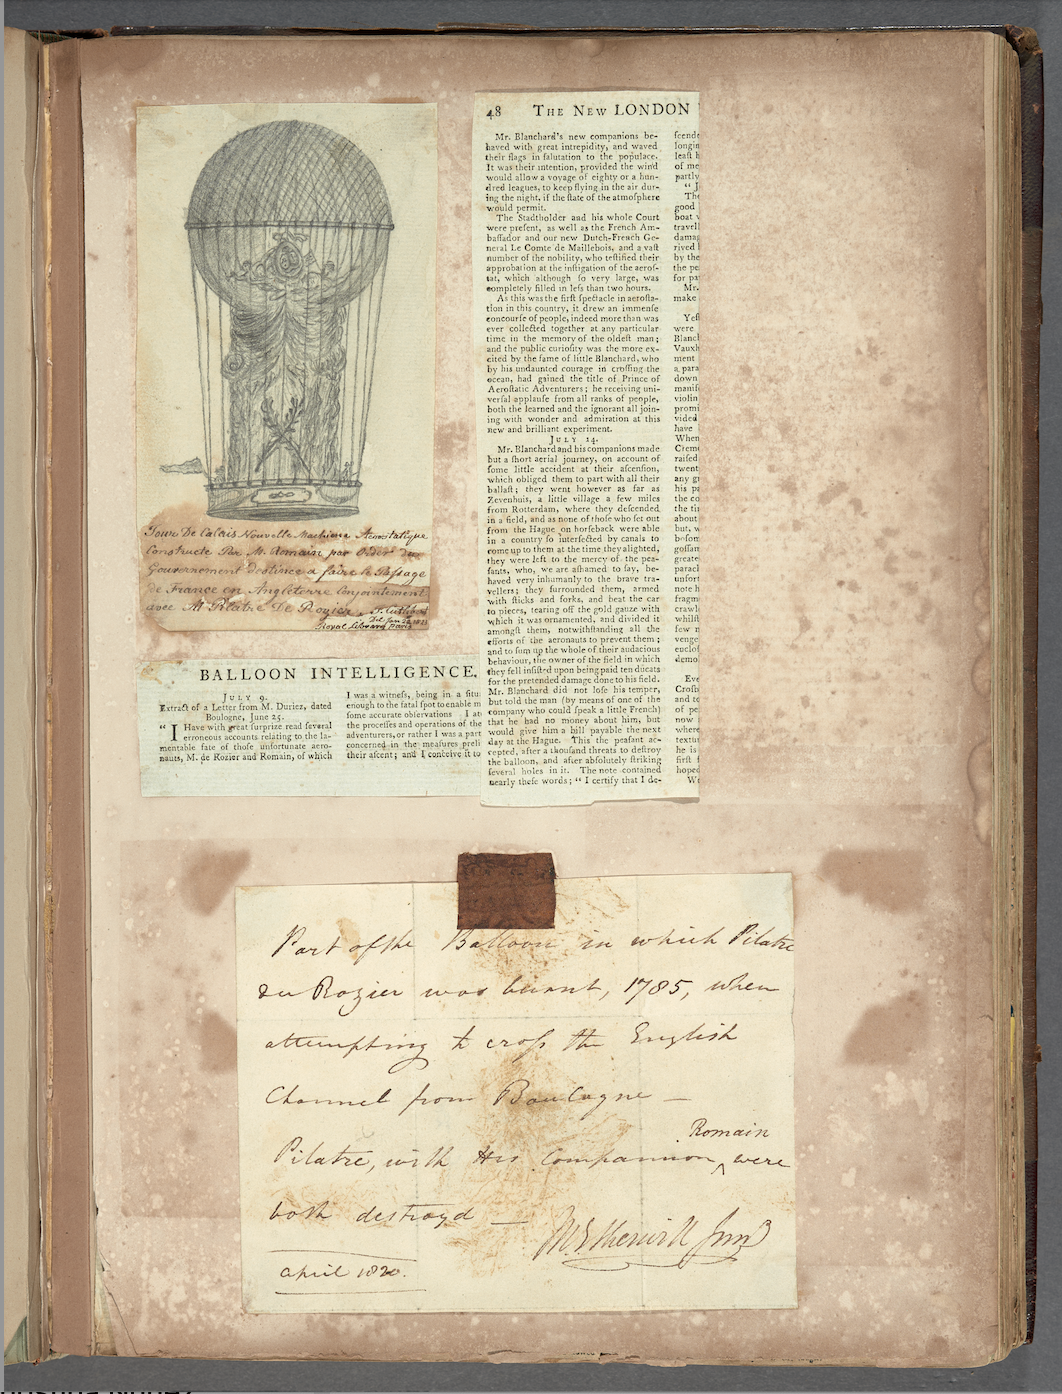 Tour De Calais Nouvelle Machiene Aerostatique
Constructe Par M. Romain par Order du
Gouvernement destinee a faire le Passage
de France en Angleterre Conjointement
avec Mr Pilatre De Rozier.
Royal Library Paris
BALLOON INTELLIGENCE.
JULY 9.
Extract of a Letter from M. Duriez, dated
Boulogne, June 25.
"I Have with great surprize read several
erroneous accounts relating to the la-
mentable fate of those unfortunate aero-
nauts, M. de Rozier and Romain, of which
I was a witness, being in a situ
enough to the fatal spot to enable m
some accurate observations I at
the processes and operations of the
adventurers, or rather I was a part
concerned in the measures preli
their ascent; and I conceive it to
48 THE NEW LONDON
Mr. Blanchard's new companions be-
haved with great intrepidity, and waved
their flags in salutation to the populace.
It was their intention, provided the wind
would allow a voyage of eighty or a hun-
dred leagues, to keep flying in the air dur-
ing the night, if the state of the atmosphere
would permit.
The Stadtholder and his whole Court
were present, as well as the French Am-
bassador and our new Dutch-French Ge-
neral Le Comte de Maillebois, and a vast
number of the nobility, who testified their
approbation at the instigation of the aeros-
tat, which although so very large, was
completely filled in less than two hours.
As this was the first spectacle in aerosta-
tion in this country, it drew an immense
concourse of people, indeed more than was
ever collected together at any particular
time in the memory of the oldest man;
and the public curiosity was the more ex-
cited by the fame of little Blanchard, who
by his undaunted courage in crossing the
ocean, had gained the title of Prince of
Aerostatic Adventurers; he receiving uni-
versal applause from all ranks of people,
both the learned and the ignorant all join-
ing with wonder and admiration at this
new and brilliant experiment.
JULY 14.
Mr. Blanchard and his companions made
but a short aerial journey, on account of
some little accident at their ascension,
which obliged them to part with all their
ballast; they went however as far as
Zevenhuis, a little village a few miles
from Rotterdam, where they descended
in a field, and as none of those who set out
from the Hague on horseback were able
in a country so intersected by canals to
come up to them at the time they alighted,
they were left to the mercy of the pea-
sants, who, we are ashamed to say, be-
haved very inhumanly to the brave tra-
vellers; they surrounded them, armed
with sticks and forks, and beat the car
to pieces, tearing off the gold gauze with
which it was ornamented, and divided it
amongst them, notwithstanding all the
efforts of the aeronauts to prevent them;
and to sum up the whole of their audacious
behaviour, the owner of the field in which
they fell insisted upon being paid ten ducats
for the pretended damage done to his field.
Mr. Blanchard did not lose his temper,
but told the man (by means of one of the
company who could speak a little French)
that he had no money about him, but
would give him a bill payable the next
day at the Hague. This the peasant ac-
cepted, after a thousand threats to destroy
the balloon, and after absolutely striking
several holes in it. The note contained
nearly these words; "I certify that I de-
scende
longin
least h
of me
partly
"J
The
good
boat v
travell
damag
rived h
by the
the pe
for pa
Mr.
make
Yest
were
Blanch
Vauxh
ment
a para
down
manife
violin
promi
vided
have
When
Creme
raised
twent
any gr
his pa
the co
the tim
about
but, w
bosom
gossam
greate
parach
unfort
note h
fragm
crawl
whilst
few n
venge
enclos
demo
Eve
Crosb
and to
of pe
now
where
textu
he is
first
hoped
We
Part of the Balloon in which Pilatre
du Rozier was burnt, 1785, when
attempting to cross the English
Channel from Boulogne —
Romain
Pilatre, with His Companion ‸ were
both destroyd —
April 1820.